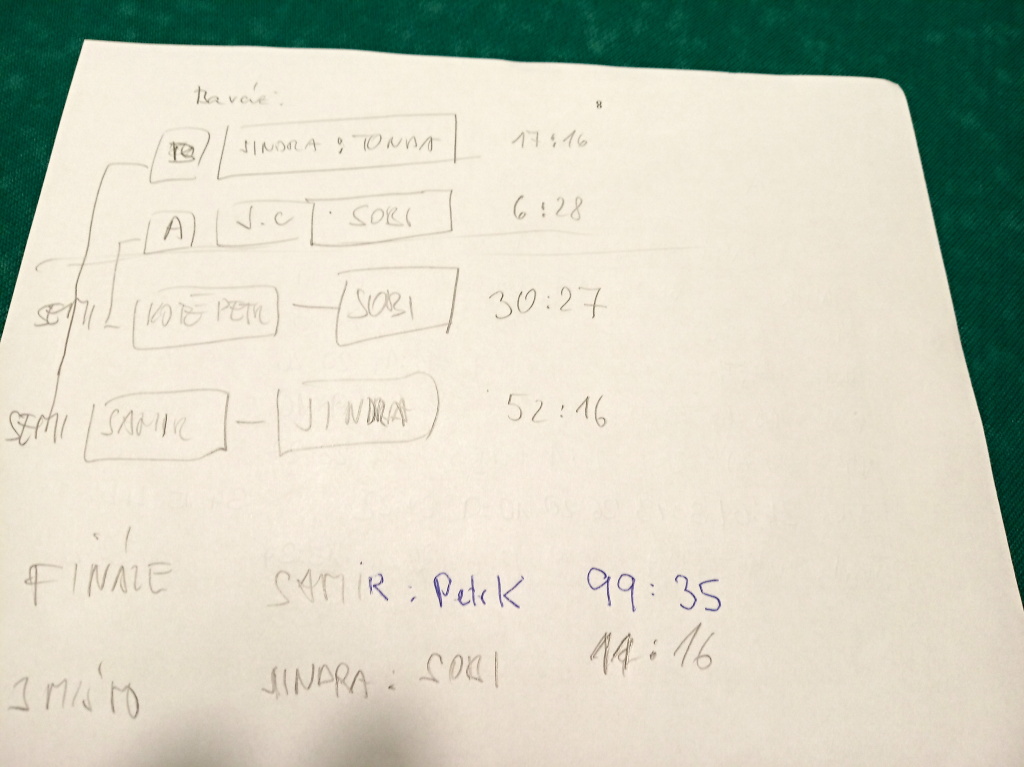 B JINDRA : TONDA 17:16
A J.C SOBI 6:28
SEMI KOTĚ PETR — SOBI 30:27
SEMI SAMIR — JINDRA 52:16
FINÁLE SAMIR : Petr K 99:35
3 MÍSTO JINDRA : SOBI 14:16